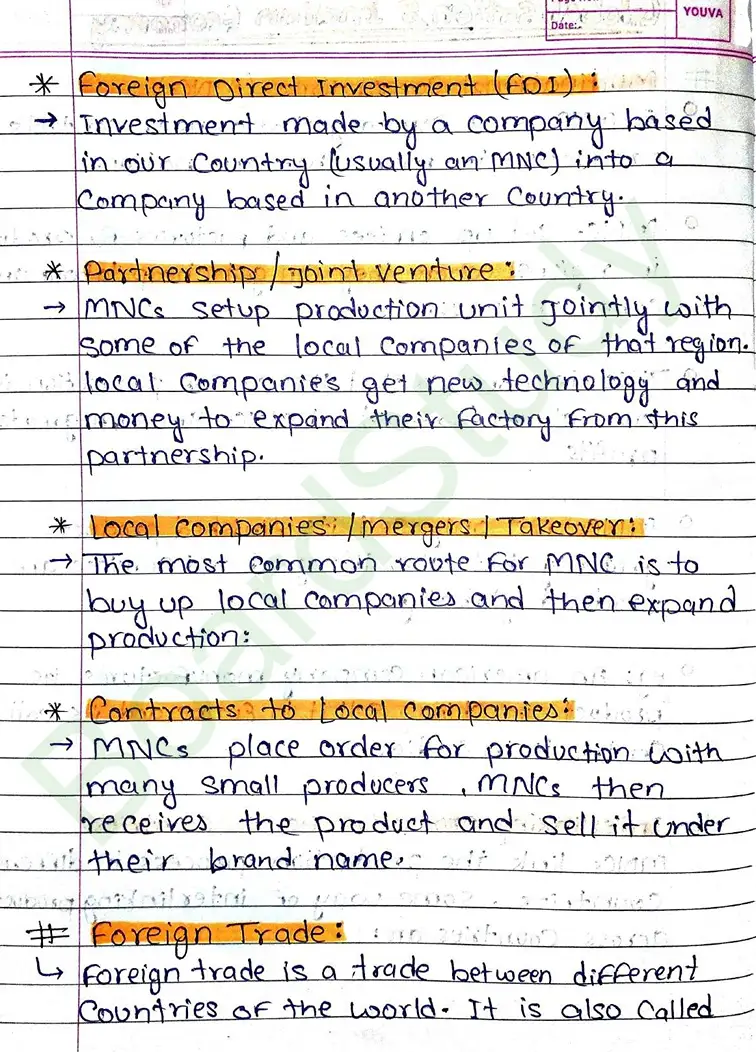 YOUVA
Date:
* Foreign Direct Investment (FDI):
→ Investment made by a company based
in our country (usually an MNC) into a
company based in another country.
* Partnership / Joint venture:
→ MNCs setup production unit Jointly with
some of the local companies of that region.
local companies get new technology and
money to expand their factory from this
partnership.
* Local companies / mergers / Takeover:
→ The most common route for MNC is to
buy up local companies and then expand
production:
* Contracts to Local companies:
→ MNCs place order for production with
many small producers, MNCs then
receives the product and sell it under
their brand name.
# Foreign Trade:
↳ Foreign trade is a trade between different
countries of the world. It is also called
BoardStudy